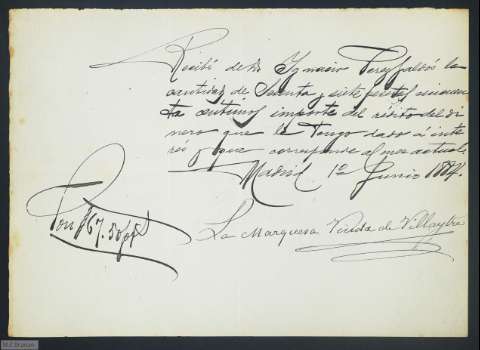 Recibí de D. Ignacio Perez Falcó la
cantidad de Sesenta y siete pesetas cincuen
ta céntimos importe del rédito del di
nero que le tengo dado á inte
rés y que corresponde al mes actual.
Madrid 1º Junio 1884.
Son 67.50 pts
La Marquesa Viuda de